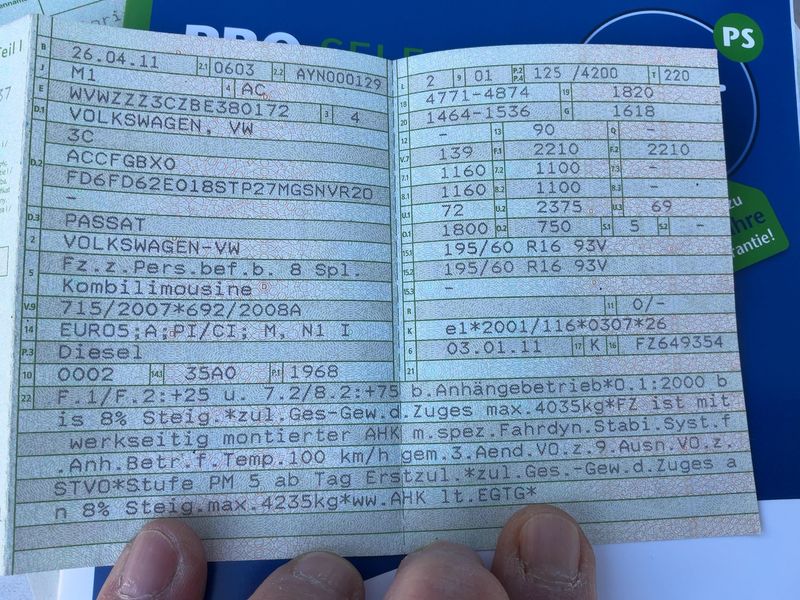 PS
Teil I
B 26.04.11 2.1 0603 2.2 AYN000129
J M1 4 AC
E WVWZZZ3CZBE380172 3 4
D.1 VOLKSWAGEN, VW
3C
D.2 ACCFGBX0
FD6FD62E018STP27MGSNVR20
-
D.3 PASSAT
2 VOLKSWAGEN-VW
5 Fz.z.Pers.bef.b. 8 Spl.
Kombilimousine
V.9 715/2007*692/2008A
14 EURO5;A;PI/CI; M, N1 I
P.3 Diesel
10 0002 14.1 35A0 P.1 1968
L 2 9 01 P.2 P.4 125 /4200 T 220
18 4771-4874 19 1820
20 1464-1536 G 1618
12 - 13 90 Q -
V.7 139 F.1 2210 F.2 2210
7.1 1160 7.2 1100 7.3 -
8.1 1160 8.2 1100 8.3 -
U.1 72 U.2 2375 U.3 69
O.1 1800 O.2 750 S.1 5 S.2 -
15.1 195/60 R16 93V
15.2 195/60 R16 93V
15.3 -
R 11 0/-
K e1*2001/116*0307*26
6 03.01.11 17 K 16 FZ649354
21
22 F.1/F.2:+25 u. 7.2/8.2:+75 b.Anhängebetrieb*O.1:2000 b
is 8% Steig.*zul.Ges-Gew.d.Zuges max.4035kg*FZ ist mit
werkseitig montierter AHK m.spez.Fahrdyn.Stabi.Syst.f
.Anh.Betr.f.Temp.100 km/h gem.3.Aend.VO.z.9.Ausn.VO.z.
STVO*Stufe PM 5 ab Tag Erstzul.*zul.Ges.-Gew.d.Zuges a
n 8% Steig.max.4235kg*ww.AHK lt.EGTG*
zu
antie!